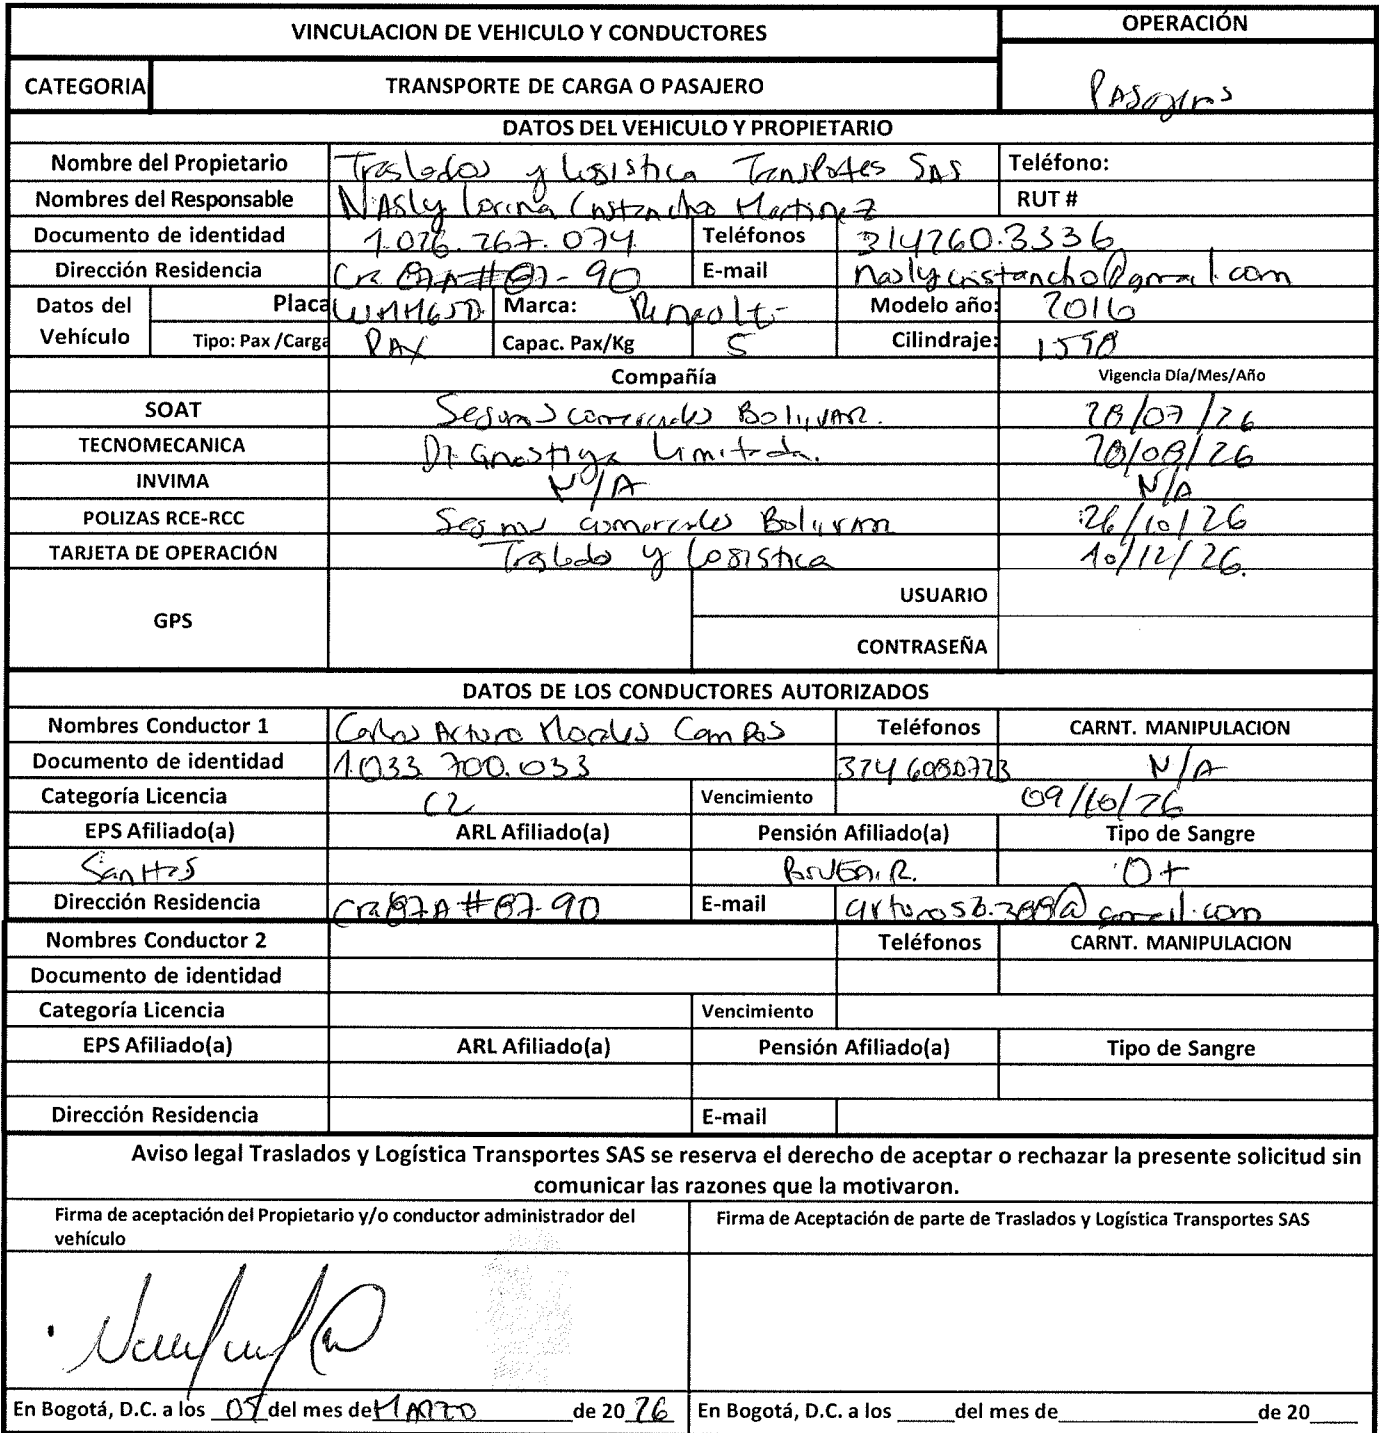 VINCULACION DE VEHICULO Y CONDUCTORES
OPERACIÓN
CATEGORIA TRANSPORTE DE CARGA O PASAJERO
PASAjeros
DATOS DEL VEHICULO Y PROPIETARIO
Nombre del Propietario Traslados y Logistica Transportes SAS Teléfono:
Nombres del Responsable NASly Lorena Cristancho Martinez RUT #
Documento de identidad 1.026.267.074 Teléfonos 3142603336
Dirección Residencia Cra 87A # 87-90 E-mail naslycristancho@gmail.com
Datos del Vehículo Placa WMM650 Marca: Renault Modelo año: 2016
Tipo: Pax /Carga PAX Capac. Pax/Kg 5 Cilindraje: 1598
Compañía Vigencia Día/Mes/Año
SOAT Seguros comerciales BoliVAR. 28/07/26
TECNOMECANICA Limitada. 28/08/26
INVIMA N/A N/A
POLIZAS RCE-RCC Seguros comerciales Bolivar 26/10/26
TARJETA DE OPERACIÓN Traslado y Logistica 10/12/26.
GPS USUARIO
CONTRASEÑA
DATOS DE LOS CONDUCTORES AUTORIZADOS
Nombres Conductor 1 Carlos Arturo Morales Campos Teléfonos CARNT. MANIPULACION
Documento de identidad 1.033.700.033 N/A
Categoría Licencia C2 Vencimiento 09/10/26
EPS Afiliado(a) ARL Afiliado(a) Pensión Afiliado(a) Tipo de Sangre
Sanitas O+
Dirección Residencia Cra 87A # 87-90 E-mail
Nombres Conductor 2 Teléfonos CARNT. MANIPULACION
Documento de identidad
Categoría Licencia Vencimiento
EPS Afiliado(a) ARL Afiliado(a) Pensión Afiliado(a) Tipo de Sangre
Dirección Residencia E-mail
Aviso legal Traslados y Logística Transportes SAS se reserva el derecho de aceptar o rechazar la presente solicitud sin
comunicar las razones que la motivaron.
Firma de aceptación del Propietario y/o conductor administrador del
vehículo
Firma de Aceptación de parte de Traslados y Logística Transportes SAS
En Bogotá, D.C. a los 05 del mes de MARZO de 20 26
En Bogotá, D.C. a los _____ del mes de _____ de 20_____